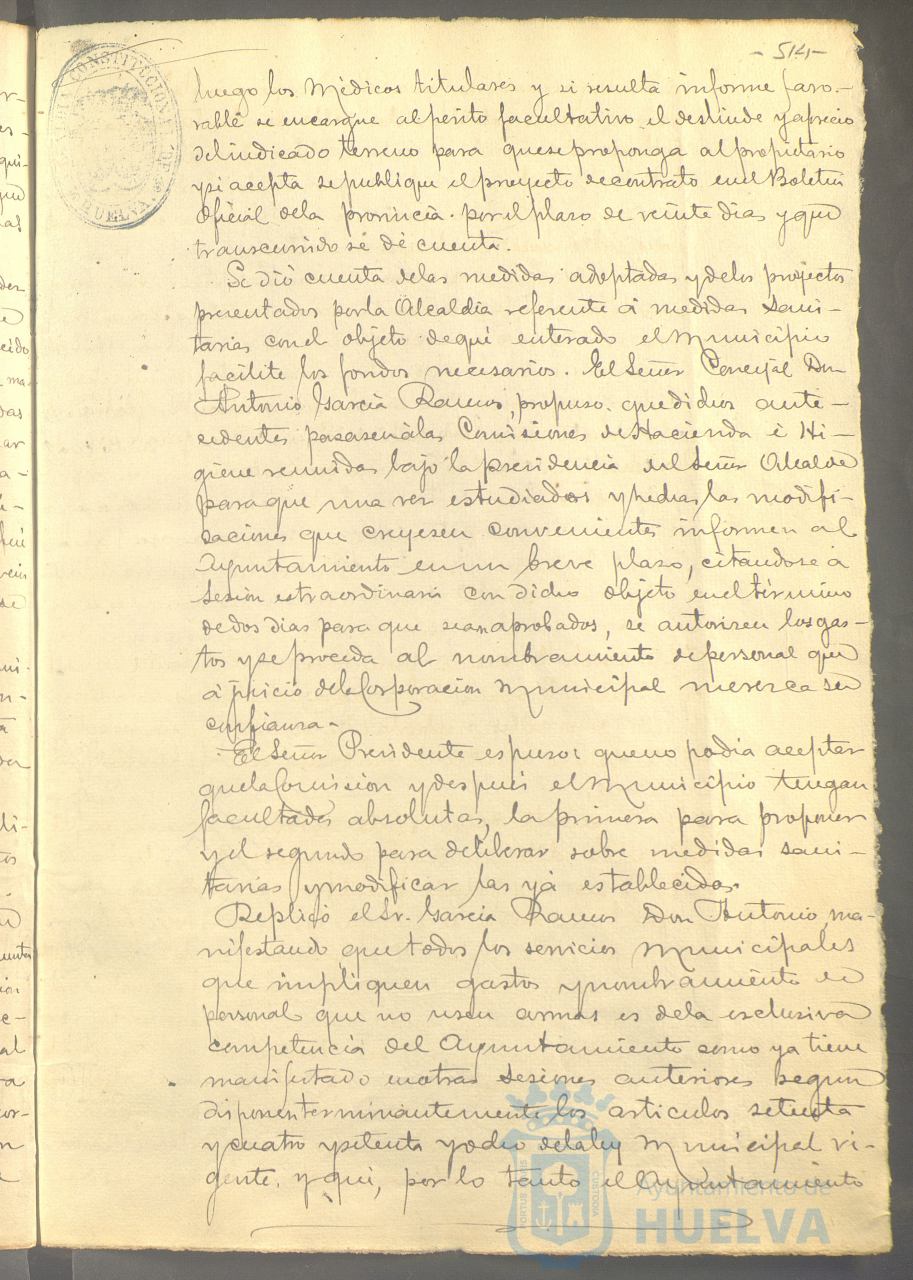 - 514 -
luego los Médicos titulares y si resulta informe favo-
rable se encargue al perito facultativo el deslinde y aprecio
del indicado terreno para que se proponga al propietario
y si acepta se publique el proyecto de contrato en el Boletin
Oficial de la provincia por el plazo de veinte dias y que
transcurrido se dé cuenta.
Se dió cuenta de las medidas adoptadas y de los proyectos
presentados por la Alcaldia referente á medidas sani-
tarias con el objeto de que enterado el Municipio
facilite los fondos necesarios. El Señor Concejal Don
Antonio Garcia Ramos, propuso que dichos ante-
cedentes pasasen á las Comisiones de Hacienda é Hi-
giene reunidas bajo la presidencia del Señor Alcalde
para que una vez estudiados y hechas las modifi-
caciones que creyesen convenientes informen al
Ayuntamiento en un breve plazo, citandose á
sesion estraordinaria con dicho objeto en el término
de dos dias para que sean aprobados, se autoricen los gas-
tos y se proceda al nombramiento de personal que
á juicio de la Corporacion Municipal merezca su
confianza.-
El Señor Presidente espuso: que no podia aceptar
que la Comision y despues el Municipio tengan
facultades absolutas, la primera para proponer
y el segundo para deliberar sobre medidas sani-
tarias y modificar las ya establecidas.
Replicó el Sr. Garcia Ramos Don Antonio, ma-
nifestando que todos los servicios Municipales
que impliquen gastos y nombramiento de
personal que no usen armas es de la esclusiva
competencia del Ayuntamiento como ya tiene
manifestado en otras sesiones anteriores segun
disponen terminantemente los articulos setenta
y cuatro y setenta y ocho de la ley Municipal vi-
gente, y que, por lo tanto el Ayuntamiento
Ayuntamiento de
HUELVA